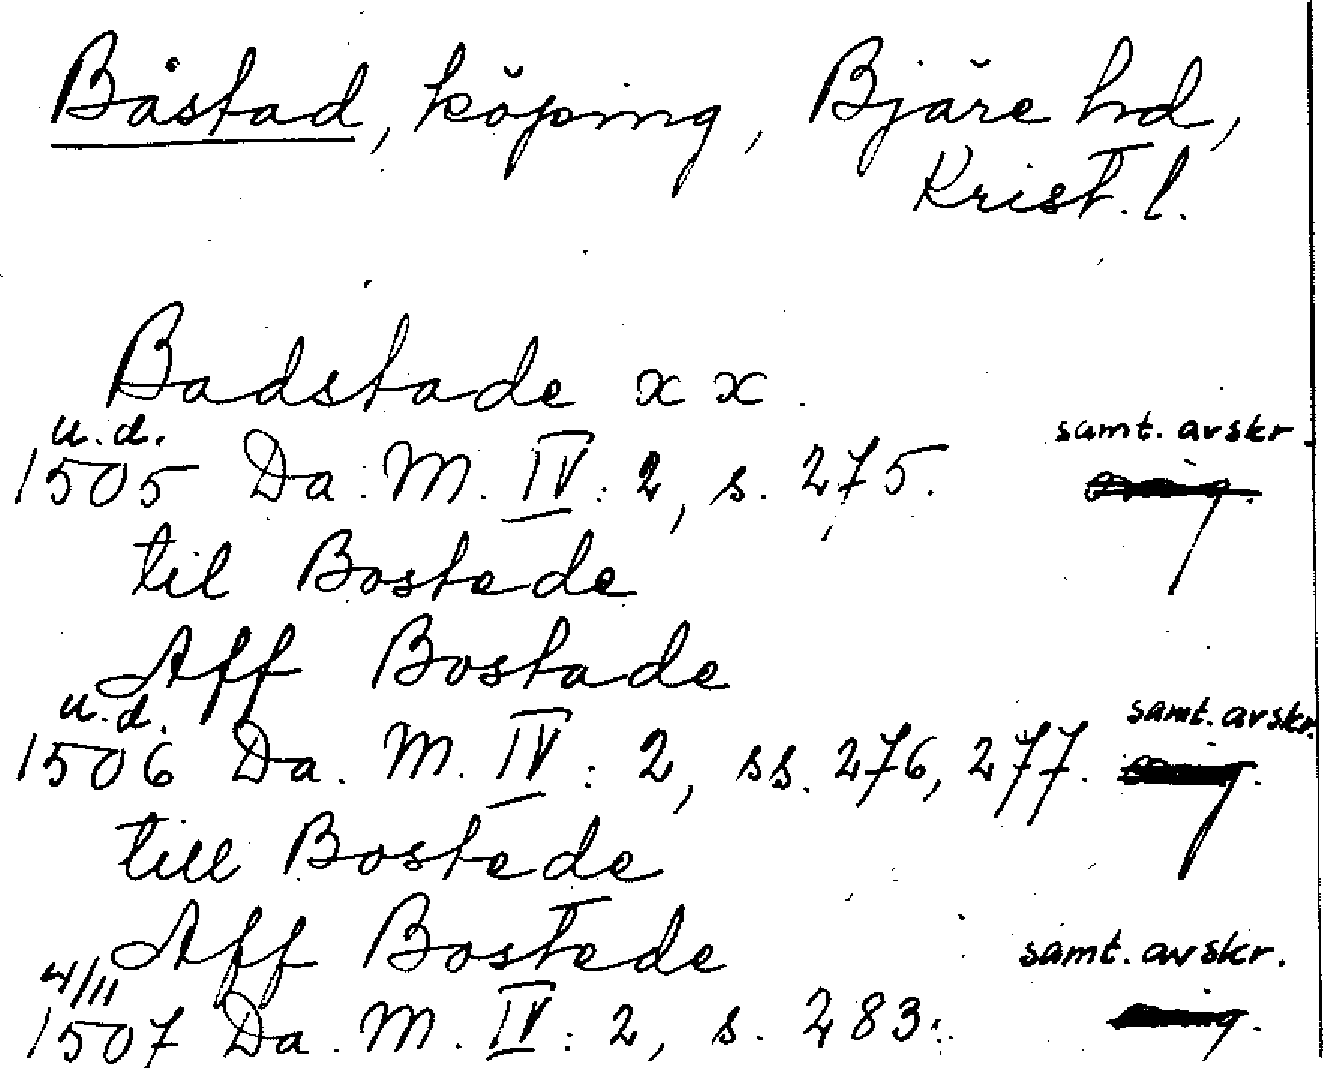 Båstad, köping, Bjäre hd,
Krist. l.
Badstade x x.
u.d. samt. avskr.
1505 Da. M. IV: 2, s. 275.
til Bostede
Aff Bostade
u.d. samt. avskr.
1506 Da. M. IV: 2, ss. 276, 277.
till Bostede
Aff Bostede
4/11 samt. avskr.
1507 Da. M. IV: 2, s. 283.